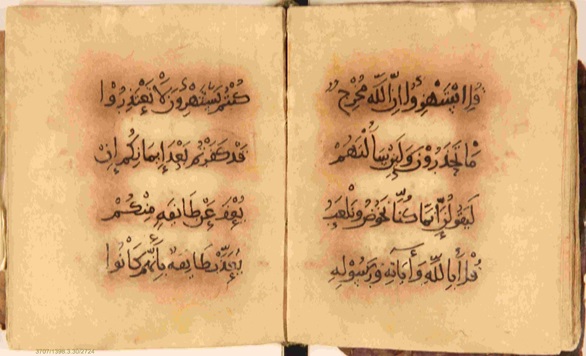 قل استهزؤا ان الله مخرج
ما تحذرون ولئن سألتهم
ليقولن إنما كنا نخوض ونلعب
قل أبالله وآياته ورسوله
كنتم تستهزؤن لا تعتذروا
قد كفرتم بعد إيمانكم إن
يعف عن طائفه منكم
يعذب طائفه بأنهم كانوا
3707/1396.3.30/2724